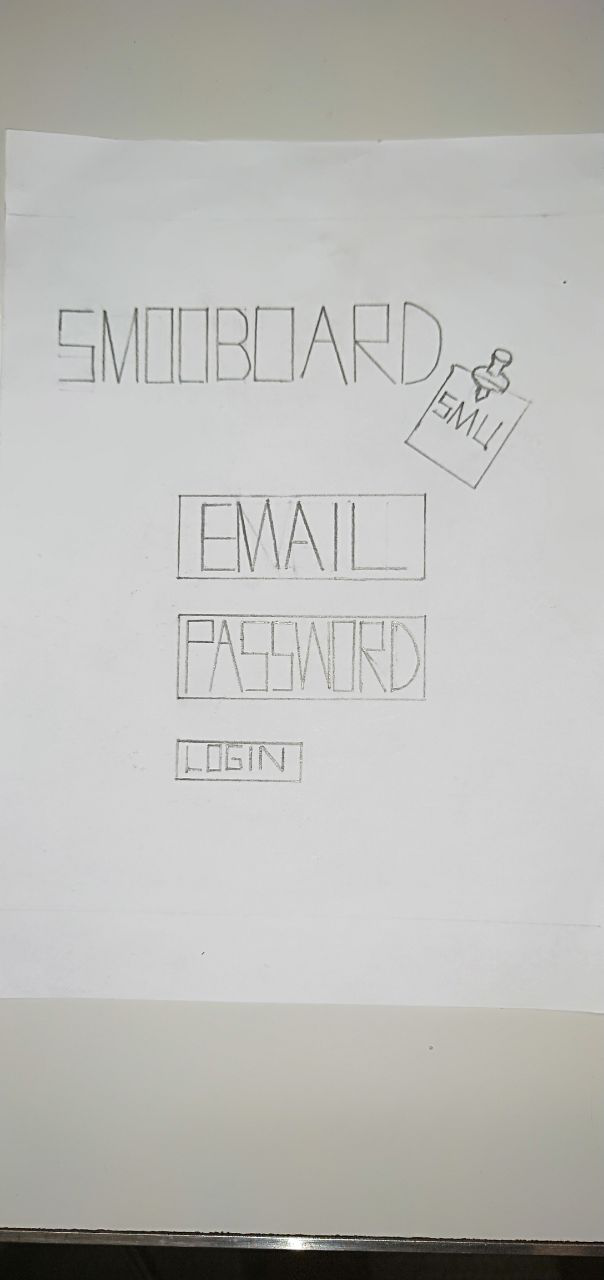 SMOOBOARD
SMU
EMAIL
PASSWORD
LOGIN